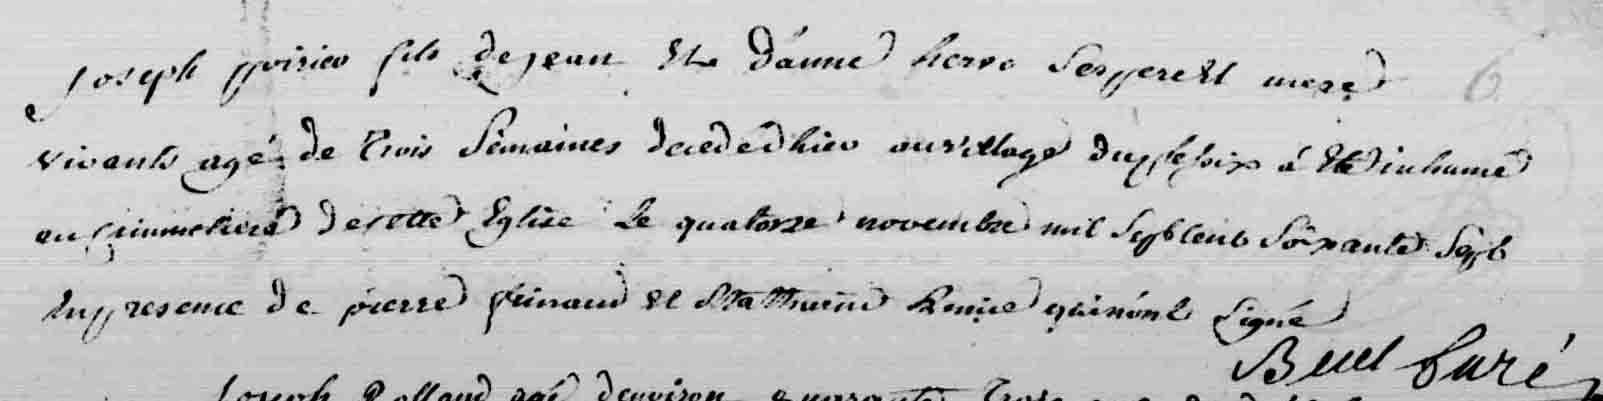 Joseph poirier fils de jean Et danne herve Ses pere Et mere
vivants agé de trois Semaines decedé d'hier au village du plessix á Eté inhumé
au cimmetiere de cette Eglise Le quatorze novembre mil Sept cent Soixante Sept
En presence de pierre et Mathurin qui n'ont Signé
Buel Curé
Joseph Rolland agé d'environ quarante trois